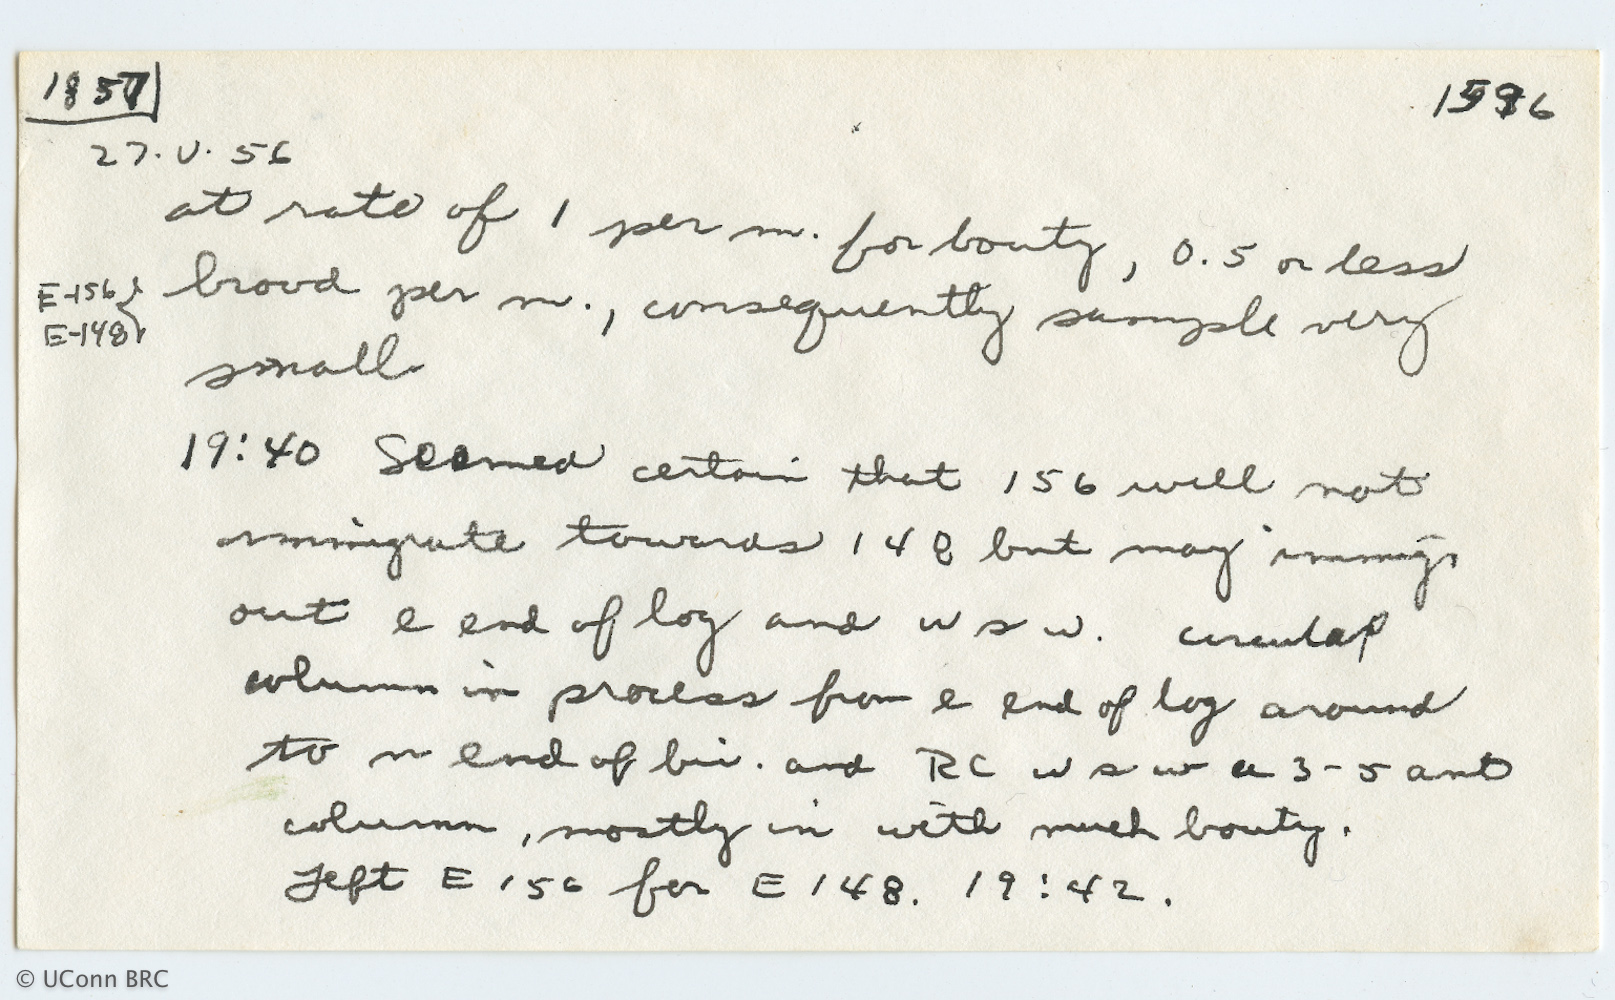 1857
1596
27.V.56
at rate of 1 per m. for bouty, 0.5 or less
E-156
E-148
brood per m., consequently sample very
small
19:40 Seemed certain that 156 will not
immigrate towards 148 but may immigr
out e end of log and w s w. circular
column in process from e end of log around
to n end of biv. and RC w s w a 3-5 ant
column, mostly in with much bouty.
Left E 156 for E 148. 19:42.
© UConn BRC